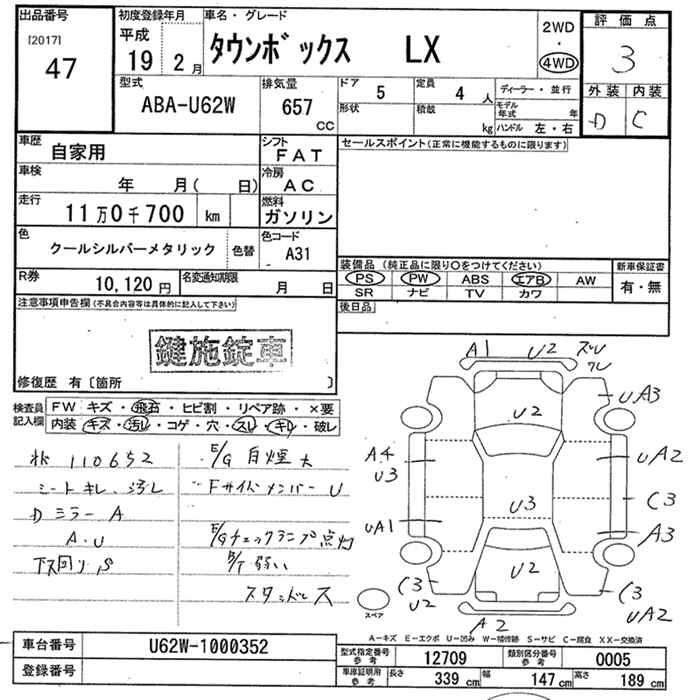 出品番号 初度登録年月 車名・グレード 2WD・4WD 評価点
[2017] 47 平成 19 2月 タウンボックス LX 3
型式 排気量 ドア 5 定員 4人 ディーラー・並行 外装 内装
ABA-U62W 657 CC 形状 積載 kg モデル年式 年 ハンドル 左・右 D C
車歴 自家用 シフト FAT セールスポイント(正常に機能するものに限ります)
車検 年 月( 日) 冷房 AC
走行 11万0千700 km 燃料 ガソリン
色 クールシルバーメタリック 色替 色コード A31
装備品 (純正品に限り○をつけてください) 新車保証書
PS PW ABS エアB AW 有・無
SR ナビ TV カワ
R券 10,120円 名変通知期限 月 日
後日品
注意事項申告欄(不具合内容等は具体的に記入して下さい)
鍵施錠車
修復歴 有〔箇所 〕
検査員記入欄 FW キズ・飛石・ヒビ割・リペア跡・×要
内装 キズ・汚レ・コゲ・穴・スレ・キレ・破レ
110652 E/G 白煙 大
シートキレ、汚レ Fサイドメンバー U
Dミラー A
A.U E/Gチェックランプ点灯
下回り、S B/T 弱い
スタッドレス
A1 U2 ズレ ワレ
U2 UA3
A4 U3 UA2
U3 C3
UA1 A3
C3 U2 U2 C3 UA2
A2
スペア
A―キズ E―エクボ U―凹み W―補修跡 S―サビ C―腐食 XX―交換済
車台番号 U62W-1000352 型式指定番号 参考 12709 類別区分番号 参考 0005
登録番号 車庫証明用 参考 長さ 339cm 幅 147cm 高さ 189cm